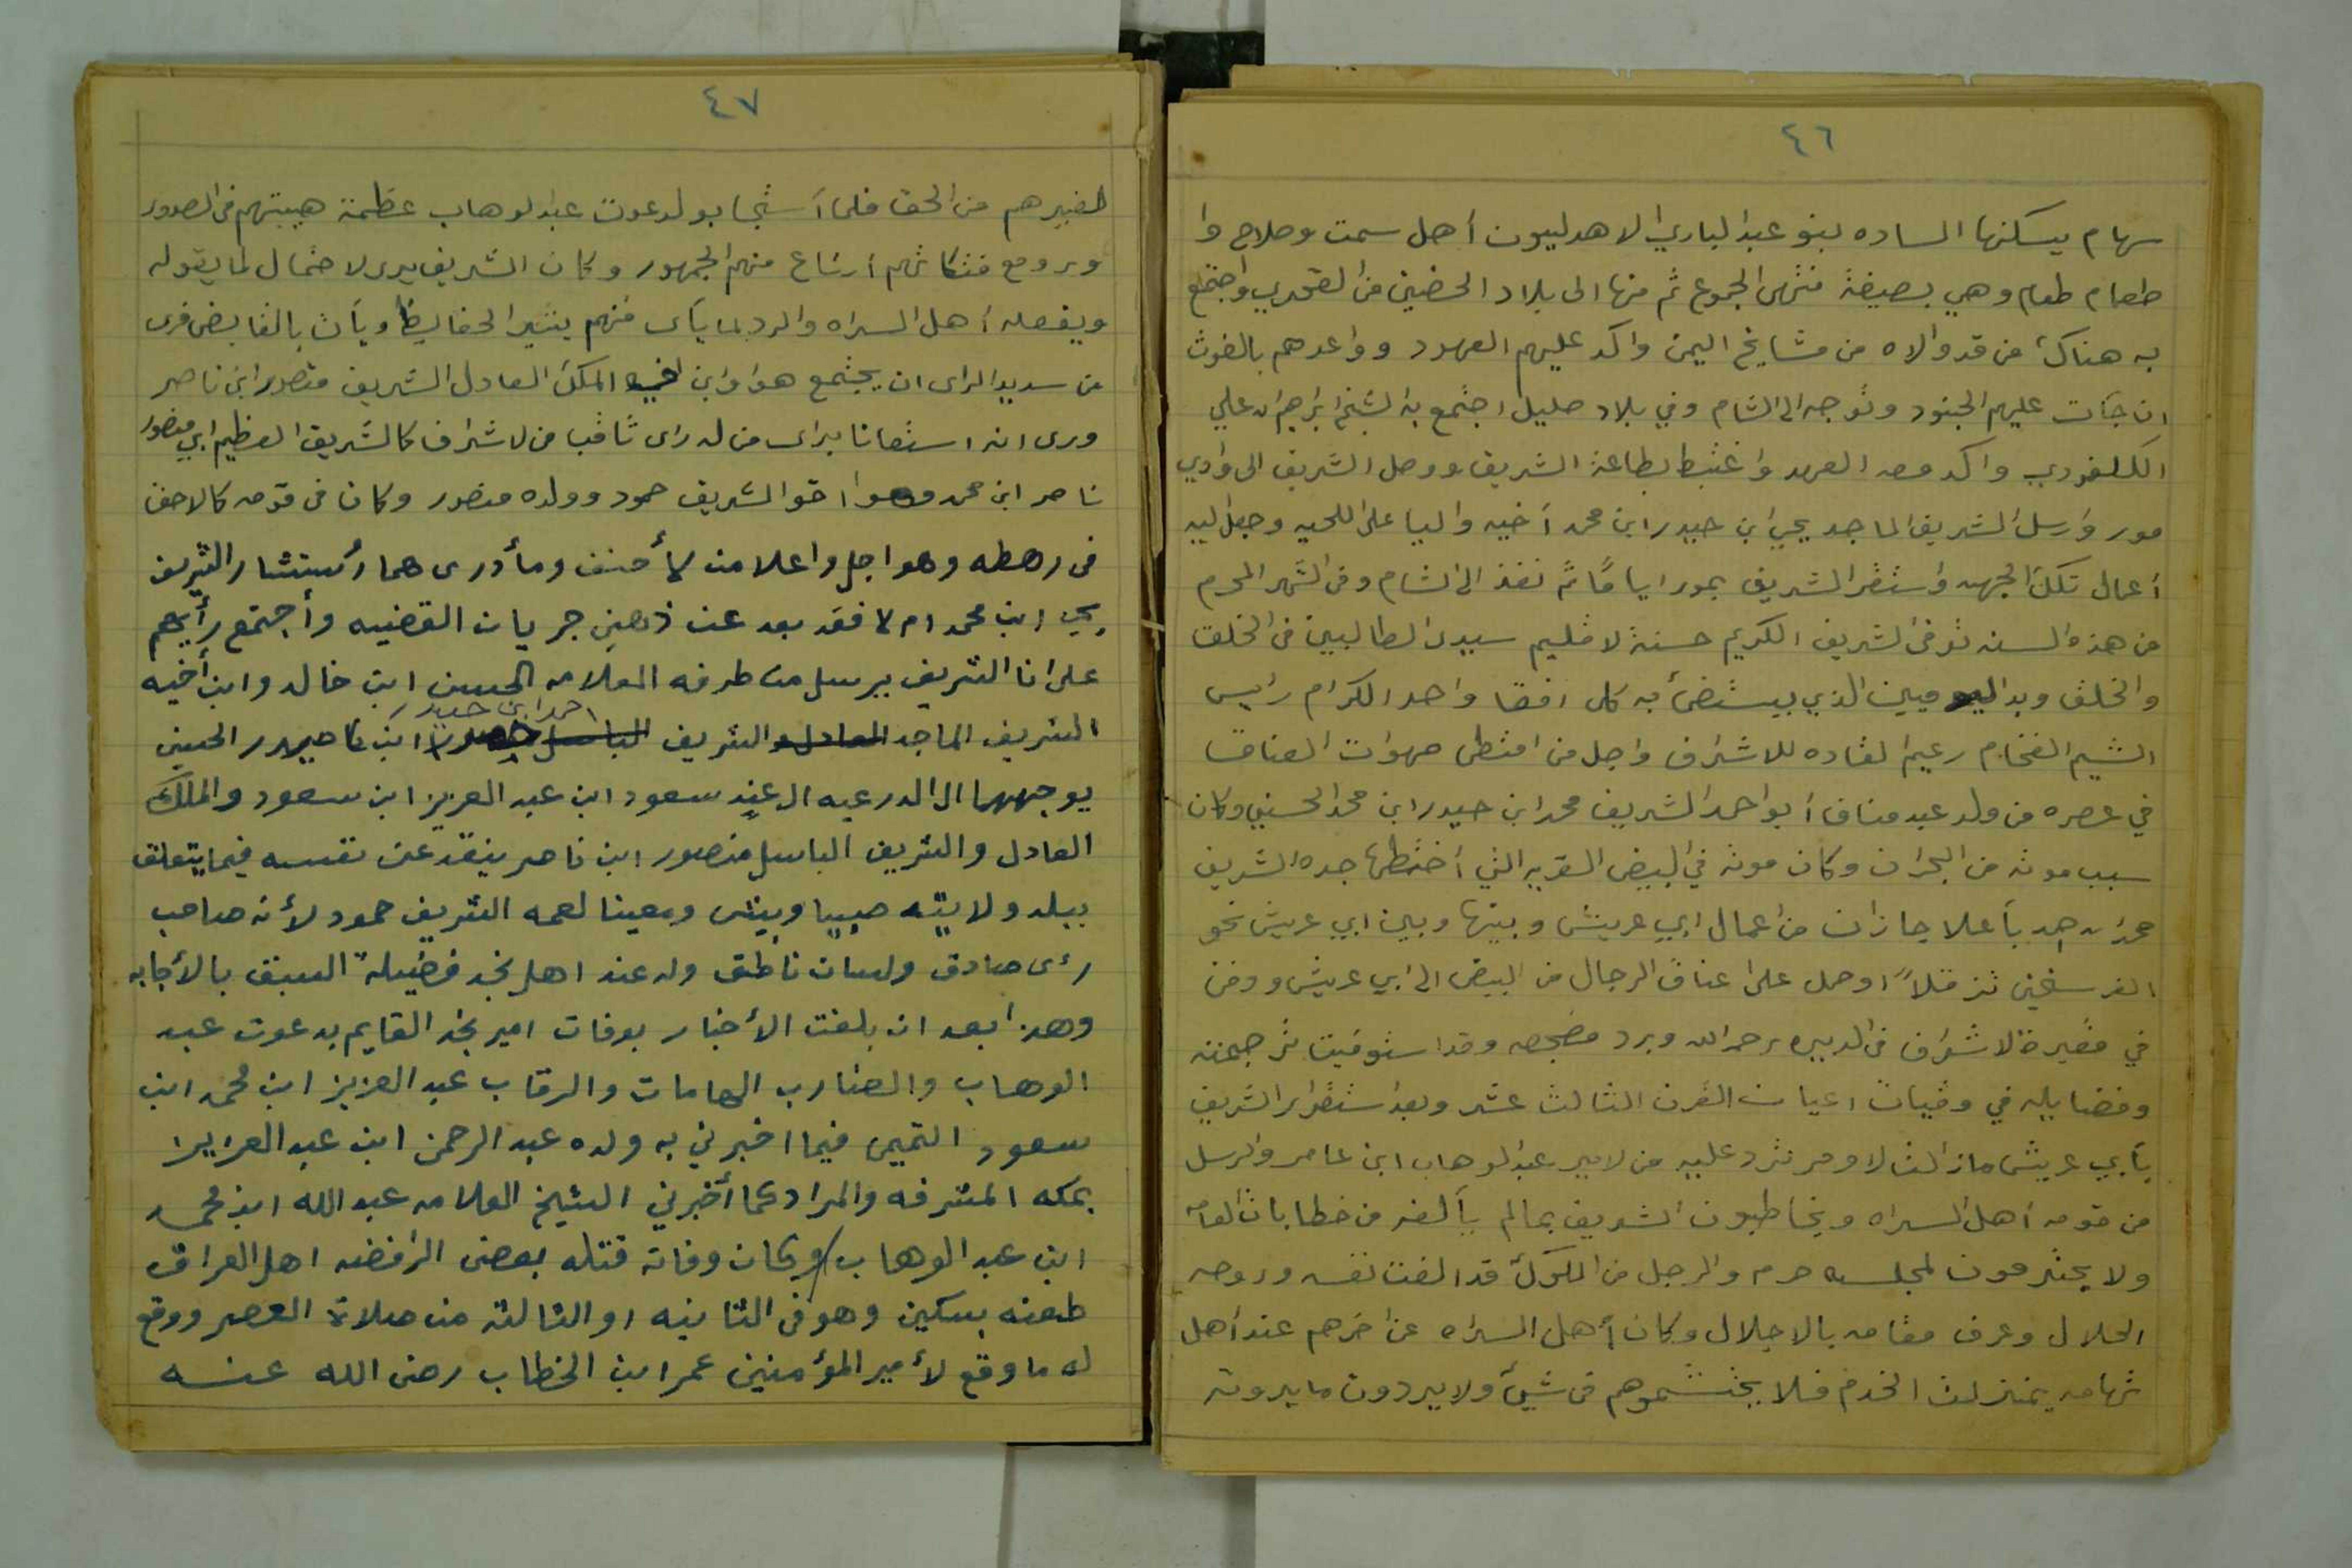 ٤٦
سهام يسكنها الساده بنو عبد الباري الاهدليون أهل سمت وصلاح وا
طعام طعام وهي بصيفة منتهى الجموع ثم منها الى بلاد الحضين من القحري واجتمع
به هناك من قد والاه من مشايخ اليمن واكد عليهم العهود وواعدهم بالغوث
ان جآت عليهم الجنود وتوجه الى الشام وفي بلاد صليل اجتمع به الشيخ ابراهيم ابن علي
الكلفودي واكد معه العهد واغتبط بطاعة الشريف ووصل الشريف الى وادي
مور وارسل الشريف الماجد يحيى ابن حيدر ابن محمد أخيه واليا على اللحيه وجعل اليه
أعمال تلك الجهه واستقر الشريف بمور اياما ثم نفذ الى الشام وفي الشهر المحرم
من هذه السنه توفى الشريف الكريم حسنة لاقليم سيد الطالبين في الخلق
والخلق وبدا الذي يستضئ به كل افق واحد الكرام رايس
الشيم الفخام زعيم القاده للاشراف واجل من امتطى صهوات العناق
في عصره من ولد عبد مناف أبو احمد الشريف محمد ابن حيدر ابن محمد الحسني وكان
سبب موته من البحران وكان موته في البيض القريه التي أختطها جده الشريف
محمد ابن احمد بأعلا جازان من اعمال ابي عريش وبينها وبين ابي عريش نحو
الفرسخين تزقلاً اوحمل على اعناق الرجال من البيض الى ابي عريش ودفن
في مقبرة الاشراف في الديره رحمه الله وبرد مضجعه وقد استوفيت ترجمته
وفضايله في وفيات اعيان القرن الثالث عشر وبعد استقرار الشريف
بأبي عريش مازالت الاوامر ترد عليه من لامير عبد الوهاب ابن عامر والرسل
من قومه أهل السراه ويخاطبون الشريف بمالم يألفه من خطابات العامه
ولا يحترمون لمجلسه حرم والرجل من الملوك قد الفت نفسه وروحه
الجلال وعرف مقامه بالاجلال وكان أهل السراه عن اخرهم عند أهل
تهامه بمنزلت الخدم فلا يحتشموهم في شيئ ولا يردون ما يردونه
٤٧
لغيرهم من الحق فلما أستجابو لدعوت عبد الوهاب عظمة هيبتهم في الصدور
وبرومع فتكاتهم ارتاع منهم الجمهور وكان الشريف يرى لاحتمال لما يقوله
ويفعله أهل السراه والرد بما يأتى منهم يثير الحفايظ ويأت بالغايض فرى
من سديد الراى ان يجتمع هو وابن اخيه الملك العادل الشريف منصور ابن ناصر
ورى انه استعانا براى من له راى ثاقب من لاشراف كالشريف العظيم ابي منصور
ناصر ابن محمد وهوا اخو الشريف حمود وولده منصور وكان في قومه كالاحنف
في رهطه وهو اجل واعلا من لأحنف ومأدرى هما أستشار الشريف
يحي ابن محمد ام لا فقد بعد عن ذهني جريات القضيه وأجتمع رأيهم
على انا الشريف يرسل من طرفه العلامه الحسن ابن خالد وابن أخيه
احمد ابن حيدر
الشريف الماجد العادل والشريف الباسل ابن حيدر الحسني
يوجههما الى الدرعيه الى عند سعود ابن عبد العزيز ابن سعود والملك
العادل والشريف الباسل منصور ابن ناصر ينفذ عن نفسه فيما يتعلق
ببلد ولايته صبيا وبيش ومعينا لعمه الشريف حمود لأنه صاحب
رئى صادق ولسان ناطق وله عند اهل نجد فضيلة السبق بالأجابه
وهذا بعد ان بلغت الأخبار بوفات امير نجد القايم بدعوت عبد
الوهاب والضارب الهامات والرقاب عبد العزيز ابن محمد ابن
سعود التميمى فيما اخبرني به ولده عبد الرحمن ابن عبد العزيز
بمكه المشرفه والمراد كما أخبرني الشيخ العلامه عبد الله ابن محمد
ابن عبد الوهاب وكان وفاته قتله بعض الرافضه اهل العراق
طعنه بسكين وهو في الثانيه او الثالثه من صلاة العصر ووقع
له ما وقع لأمير المؤمنين عمر ابن الخطاب رضى الله عنه